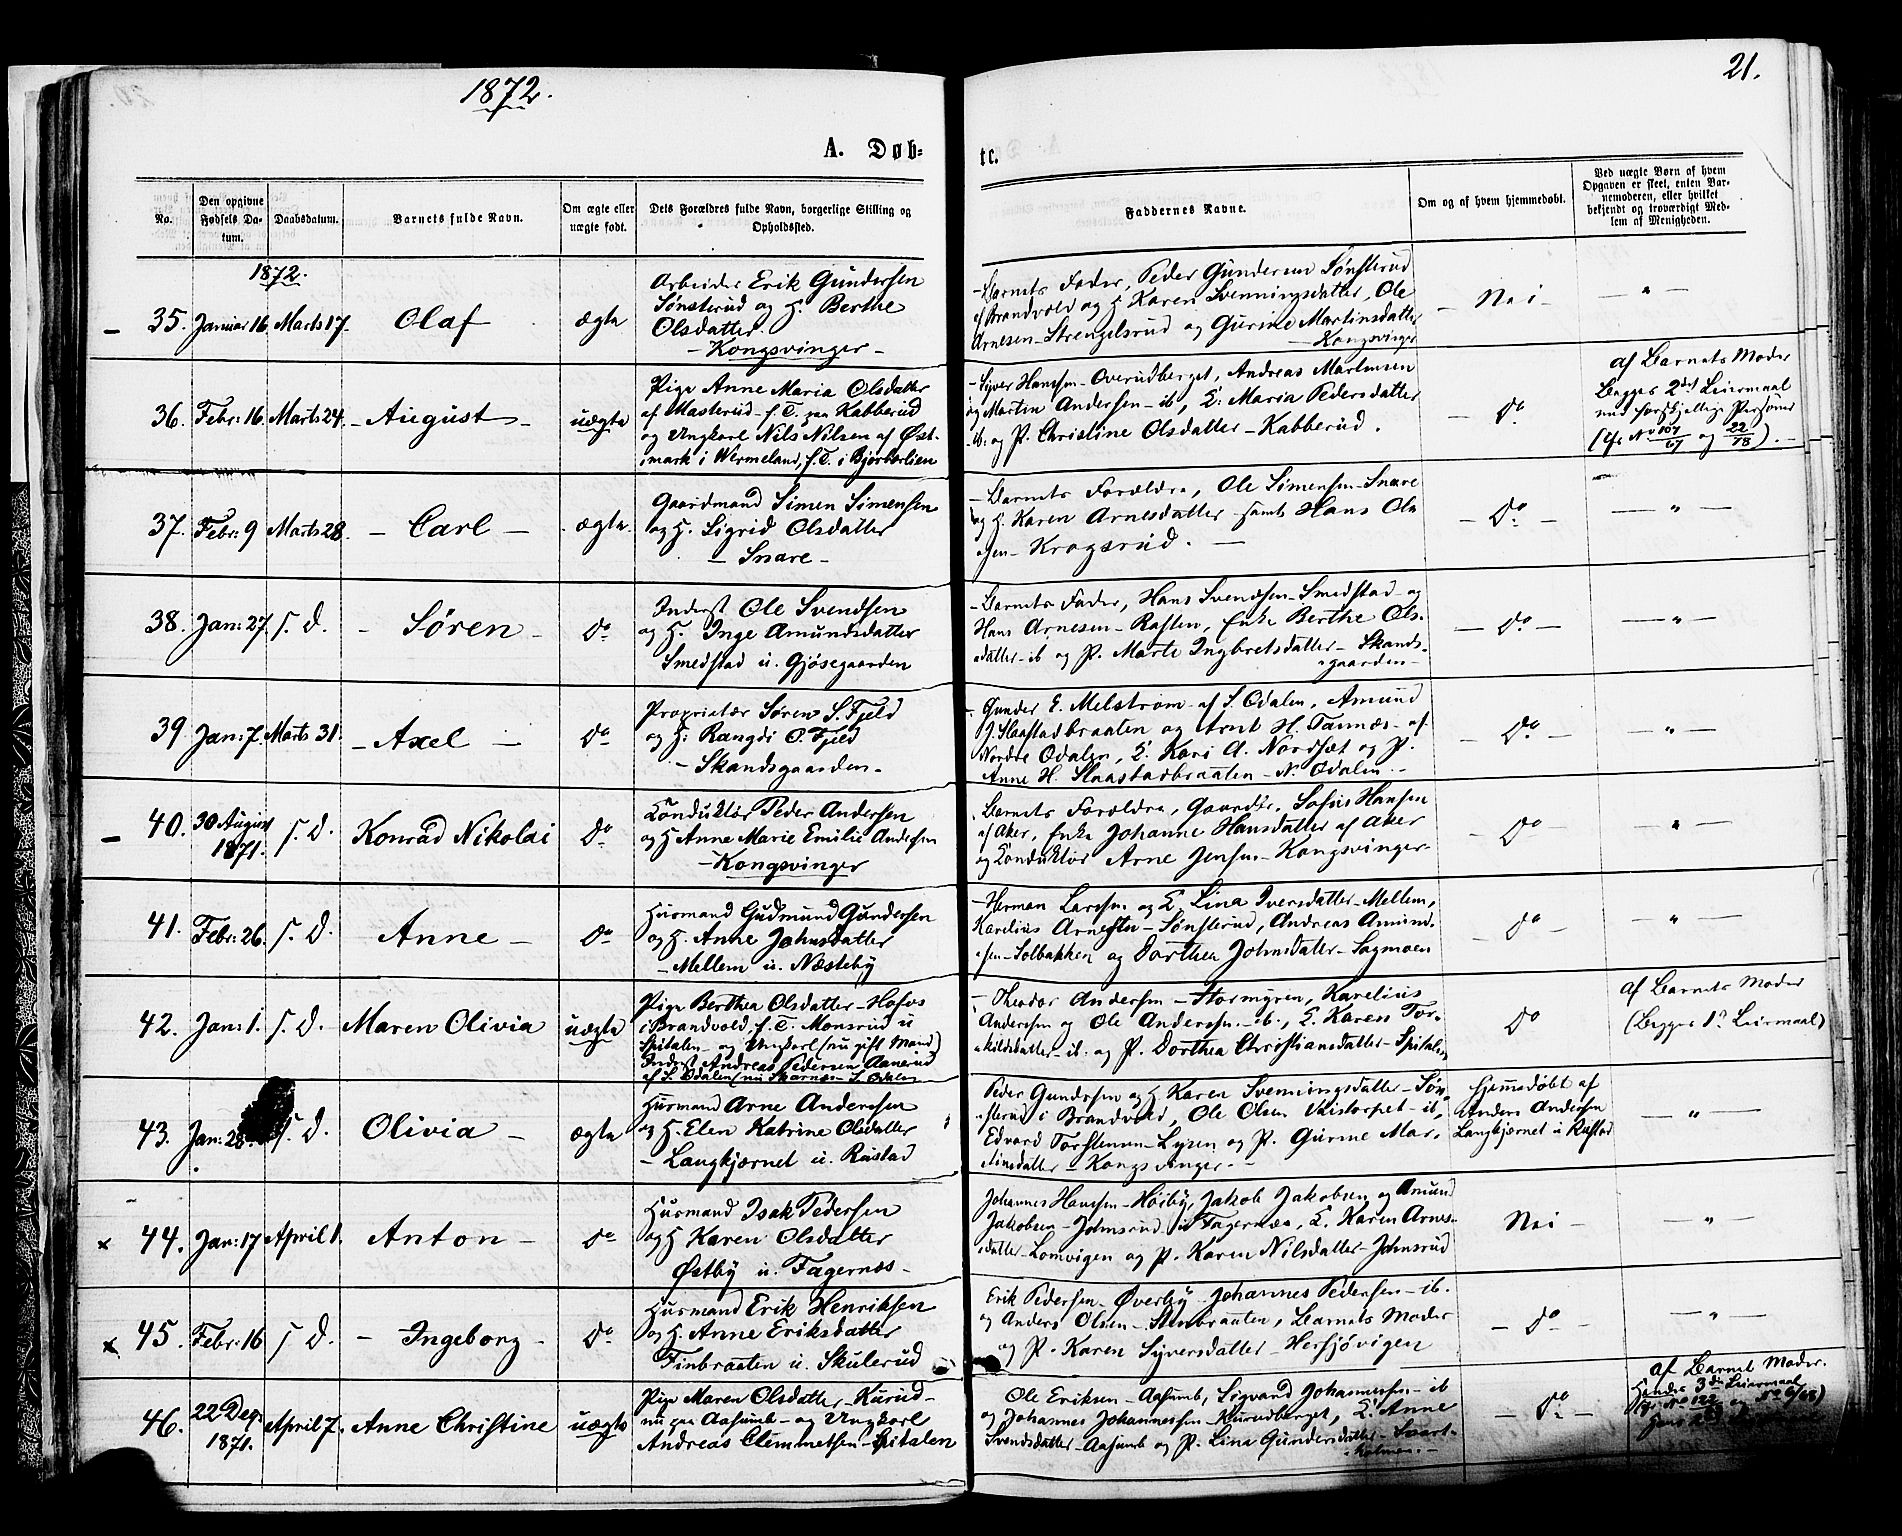 1872.
21.
A. Døb-
te.
No.
Den opgivne Fødsels Datum.
Daabsdatum.
Barnets fulde Navn.
Om ægte eller uægte født.
Dets Forældres fulde Navn, borgerlige Stilling og Opholdssted.
Faddernes Navne.
Om og af hvem hjemmedøbt.
Ved uægte Børn af hvem Opgaven er skeet, enten Barnemoderen, eller hvilket bekjendt og troværdigt Medlem af Menigheden.
1872.
35. Januar 16 Marts 17. Olaf ægte
Arbeider Erik Gundersen
Sønsterud og H. Berthe
Olsdatter.
- Kongsvinger -
- Barnets Fader, Peder Gundersen Sønsterud
af Brandvold og H. Karen Svenningsdatter, Ole
Arnesen - Strengelsrud og Gurine Martinsdatter
- Kongsvinger
- Nei - - " -
36. Febr: 16 Marts 24. - August - uægte
Pige Anne Maria Olsdatter
af Masterud - f. T. paa Kabberud
og Ungkarl Nils Nilsen af Øst-
mark i Wermeland, f. T. i Bjørbærlien
- Syver Hansen - Overudberget, Andreas Martinsen
og Martin Andersen - ib, E: Maria Pedersdatter
ib. og P. Christine Olsdatter - Kabberud.
- Do
af Barnets Moder
Begges 2det Leiermaal
med forskjellige Personer
37. Febr: 9 Marts 28. - Carl - ægte.
Gaardmand Simen Simensen
og H. Sigrid Olsdatter
- Snare -
- Barnets Forældre, Ole Simensen - Snare
og H. Karen Arnesdatter samt Hans Ole
sen - Krogsrud. -
- Do - - " -
38. Jan: 27. s. D. - Søren - Do
Inderst Ole Svendsen
og H. Inge Amundsdatter
Smedstad u. Gjøsegaarden
- Barnets Fader, Hans Svendsen - Smedstad og
Hans Arnesen - Rasten, Enke Berthe Ols-
datter - ib og P. Marte Ingbretsdatter - Skands-
gaarden -
- Do - - " -
39 Jan: 7. Marts 31. - Axel - Do
Proprietær Søren S. Fjeld
og H: Rangdi O. Fjeld
- Skandsgaarden -
- Gunder E. Melstrøm - af S. Odalen, Amund
J. Slaastadbraaten og Arnt H. Tannæs - af
Nordre Odalen, E. Kari A. Nordsæt og P.
Anne H. Slaastadbraaten - N. Odalen. -
- Do - - " -
40. 30 August 1871. s. D. Konrad Nikolai Do
Conduktør Peder Andersen
og H Anne Marie Emilie Andersen
- Kongsvinger
- Barnets Forældre, Gaardbr. Sofus Hansen
af Aker, Enke Johanne Hansdatter af Aker
og Conduktør Arne Jensen - Kongsvinger
- Do - - " -
41. Febr: 26. s. D. Anne - Do
Husmand Gudmund Gundersen
og H. Anne Johnsdatter
- Mellem u. Næsteby
- Herman Larsen og E. Lina Iversdatter - Mellem,
Karelius Arnesen - Sønsterud, Andreas Amund-
sen - Solbakken og Dorthea Johnsdatter - Sagmoen
- Do - - " -
42. Jan: 1. s. D. Maren Olivia uægte
Pige Berthea Olsdatter - Hofos
i Brandvold, f. T. Monsrud u
Spitalen - og Ungkarl (nu gift Mand)
Inderst Andreas Pedersen Aanerud
af S. Odalen (nu Skarnæs - S. Odalen
- Theodor Andersen - Stormyren, Karelius
Andersen og Ole Andersen - ib., E. Karen Tor-
kildsdatter - ib. og P. Dorthea Christiansdatter - Spitalen
Do
af Barnets Moder
(Begges 1ste Leiermaal)
43. Jan: 28. s. D. Olivia - ægte
Husmand Arne Andersen
og H. Elen Katrine Olsdatter
- Langkjærnet u. Rastad
Peder Gundersen og H Karen Svenningsdatter - Søn-
sterud i Brandvold, Ole Olsen - ib.,
Edvard Torstensen - Lysen og P. Gurine Mar-
tinsdatter - Kongsvinger -
hjemedøbt af
Anders Andersen
Langkjernet u Rastad
- " -
44. Jan: 17 April 1. Anton - Do
Husmand Isak Pedersen
og H Karen Olsdatter
Østby u. Fagernæs -
Johannes Hansen - Hørby, Jakob Jakobsen og Amund
Jakobsen - Johnsrud u Fagernæs, E. Karen Arnes-
datter - Lomvigen og P. Karen Nilsdatter - Johnsrud
Nei - - " -
45. Febr: 16 s D. - Ingeborg - Do
Husmand Erik Henriksen
og H. Anne Eriksdatter
Finbraaten u. Skulerud
Erik Pedersen - Øverby, Johannes Pedersen - ib.
og Anders Olsen - Stenbraaten, Barnets Moder
og P. Karen Syversdatter - Hersjøvigen
- Do - - " -
46. 22 Deç: 1871. April 7. Anne Christine uægte
Pige Maren Olsdatter - Kurud -
nu paa Aasumb - og Ungkarl
Andreas Clemmetsen - Spitalen
Ole Eriksen - Aasumb, Sigvard Johannessen - ib
og Johannes Johannessen - Kurudberget, E. Anne
Svendsdatter - Aasumb og P. Lina Gundersdatter - Svart-
holmen. -
- Do -
af Barnets Moder.
Hendes 3die Leiermaal